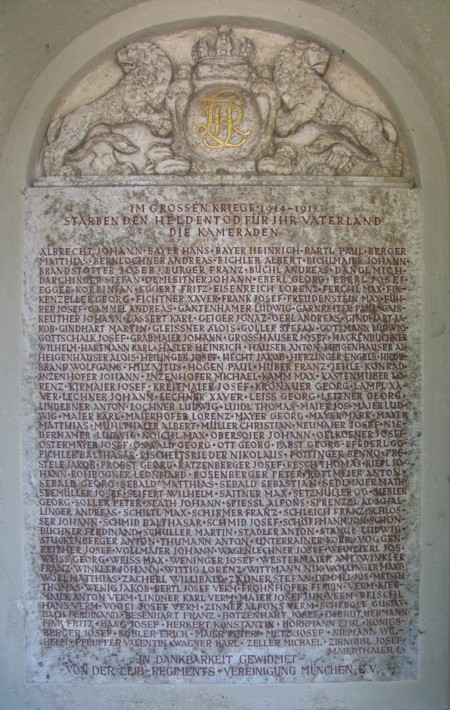 LR
IM GROSSEN KRIEGE 1914-1918
STARBEN DEN HELDENTOD FÜR IHR VATERLAND
DIE KAMERADEN
ALBRECHT JOHANN · BAYER HANS · BAYER HEINRICH · BARTL PAUL · BERGER
MATTHIAS · BERNLOCHNER ANDREAS · BICHLER ALBERT · BUCHLMAIER JOHANN
BRANDSTÖTTER JOSEF · BURGER FRANZ · BÜCHL ANDREAS · DANGL MICH·
DARCHINGER STEFAN · DEMLEITNER JOHANN · EBERL GEORG · EBERL JOSEF
EGGER KORBINIAN · EGGERT FRITZ · EISENREICH LORENZ · FERCHL MAX · FIC
KENZELLER GEORG · FICHTNER XAVER · FRANK JOSEF · FREUDENSTEIN MAX · FÜH
RER JOSEF · GAMMEL ANDREAS · GANTENHAMER LUDWIG · GARNREITER PAUL · GAIS
REUTHER JOHANN · GASSERT KARL · GEIGER IGNAZ · OBERL ANDREAS · GINDHART JA
KOB · GINDHART MARTIN · GLEISSNER ALOIS · GOLLER STEFAN · GOTTMANN LUDWIG
GOTTSCHALK JOSEF · GRABMAIER JOHANN · GROSSHAUSER JOSEF · HACKENBUCHNER
WILHELM · HARTMANN KARL · HASLER HEINRICH · HAUSER ANTON · HEIGENHAUSER AL
HEIGENHAUSER ALOIS · HEILINGER JOSEF · HECHT JAKOB · HERZINGER ENGELB· HILDE
BRAND WOLFGANG · HOGEN PAUL · HUBER FRANZ · JEHLE KONRAD
INZENHOFER JOHANN · INZENHOFER MICHAEL · KAMM MAX · KASTENHUBER LO
RENZ · KIRMAIER JOSEF · KREITMAIER JOSEF · KRONAUER GEORG · LAMPL XA
VER · LECHNER JOHANN · LECHNER XAVER · LEISS GEORG · LEITNER GEORG
LINDEBNER ANTON · LOCHNER LUDWIG · LUIDL THOMAS · MAIER JOS· MAIER LUD
WIG · MAIER KARL · MAIERHOFER LORENZ · MAYER GEORG · MAYER MARK· MAYER
MATTHIAS · MÜHLTHALER ALBERT · MÜLLER CHRISTIAN · NEUMAIER JOSEF · NIE
DERHAMER LUDWIG · NOICHL MAX · OBERSOJER JOHANN · OELKOFNER JOSEF
OSTERMAYER JOSEF · OSWALD GEORG · OTT GEORG · PABST GEORG · PFEDERL GG·
PICHLER BALTHASAR · PISCHELTSRIEDER NIKOLAUS · PÖTTINGER BENNO · PRE
STELE JAKOB · PROBST GEORG · RATZENBERGER JOSEF · RESCH THOMAS · RIEPL JO
HANN · ROHBOGNER LEONHARD · ROSENBERGER PETER · ROTTMEIER ANTON
SEBALD GEORG · SEBALD MATTHIAS · SEBALD SEBASTIAN · SEDLMAIER MATH·
SEEMÜLLER JOSEF · SEIFERT WILHELM · SAITNER MAX · SETZMÜLLER GG· SIEBLER
GEORG · SOLLER PETER · SPATH JOHANN · SPIESSL ALFONS · SPRENZEL AL· SCHAL
LINGER ANDREAS · SCHILTL MAX · SCHIRMER FRANZ · SCHLEICH FRANZ · SCHLOS
SER JOHANN · SCHMID BALTHASAR · SCHMID JOSEF · SCHÖFFMANN JOH· SCHÖN
BUCHNER FERDINAND · SCHÜLLER MARTIN · STADLER ANTON · STANGL LUDWIG
STÜCKENBERGER ANTON · THUMANN ANTON · UNTERRAINER KORB· VOGGEN
REITHER JOSEF · VOLLMAIER JOHANN · WAGENLECHNER JOSEF · WEINZIERL JOS·
WEISS GEORG · WEISS MAX · WENINGER JOSEF · WESTERMAIER ANT· WINKLER
FRANZ · WINKLER JOHANN · WITTIG LORENZ · WITTMANN NIK· WOLFINGER MARK
WÖRL MATTHIAS · ZACHERL WILLIBALD · ZAUNER STEFAN · DEMMEL JOS·
THOMAS · WENIG JAKOB · BERTL JOSEF VERM· FROHNHOFER FRUH· VERM· KER
MAIER ANTON VERM· LINDNER KARL VERM· MAIER JOSEF JUN· VERM· REISCHL
HANS VERM· VOGEL JOSEF VERM· ZINNER ALFONS VERM· SCHEGLE GUSTAV
BACH FERDINAND · BESENHART FRANZ · HERDT HERMANN
FINK FRITZ · HAAG JOSEF · HERBERT KONSTANTIN · HÖRRMANN EMIL · KÖNIGS-
BERGER JOSEF · KÖHLER ERICH · MAIER PETER · METZ JOSEF · NIEMANN WIL-
HELM · PFEUFFER VALENTIN · WAGNER KARL · ZELLER MICHAEL · ZIRNGIBL JOSEF·
MAIERTHALER L·
IN DANKBARKEIT GEWIDMET
VON DER LEIB-REGIMENTS-VEREINIGUNG MÜNCHEN, E.V.